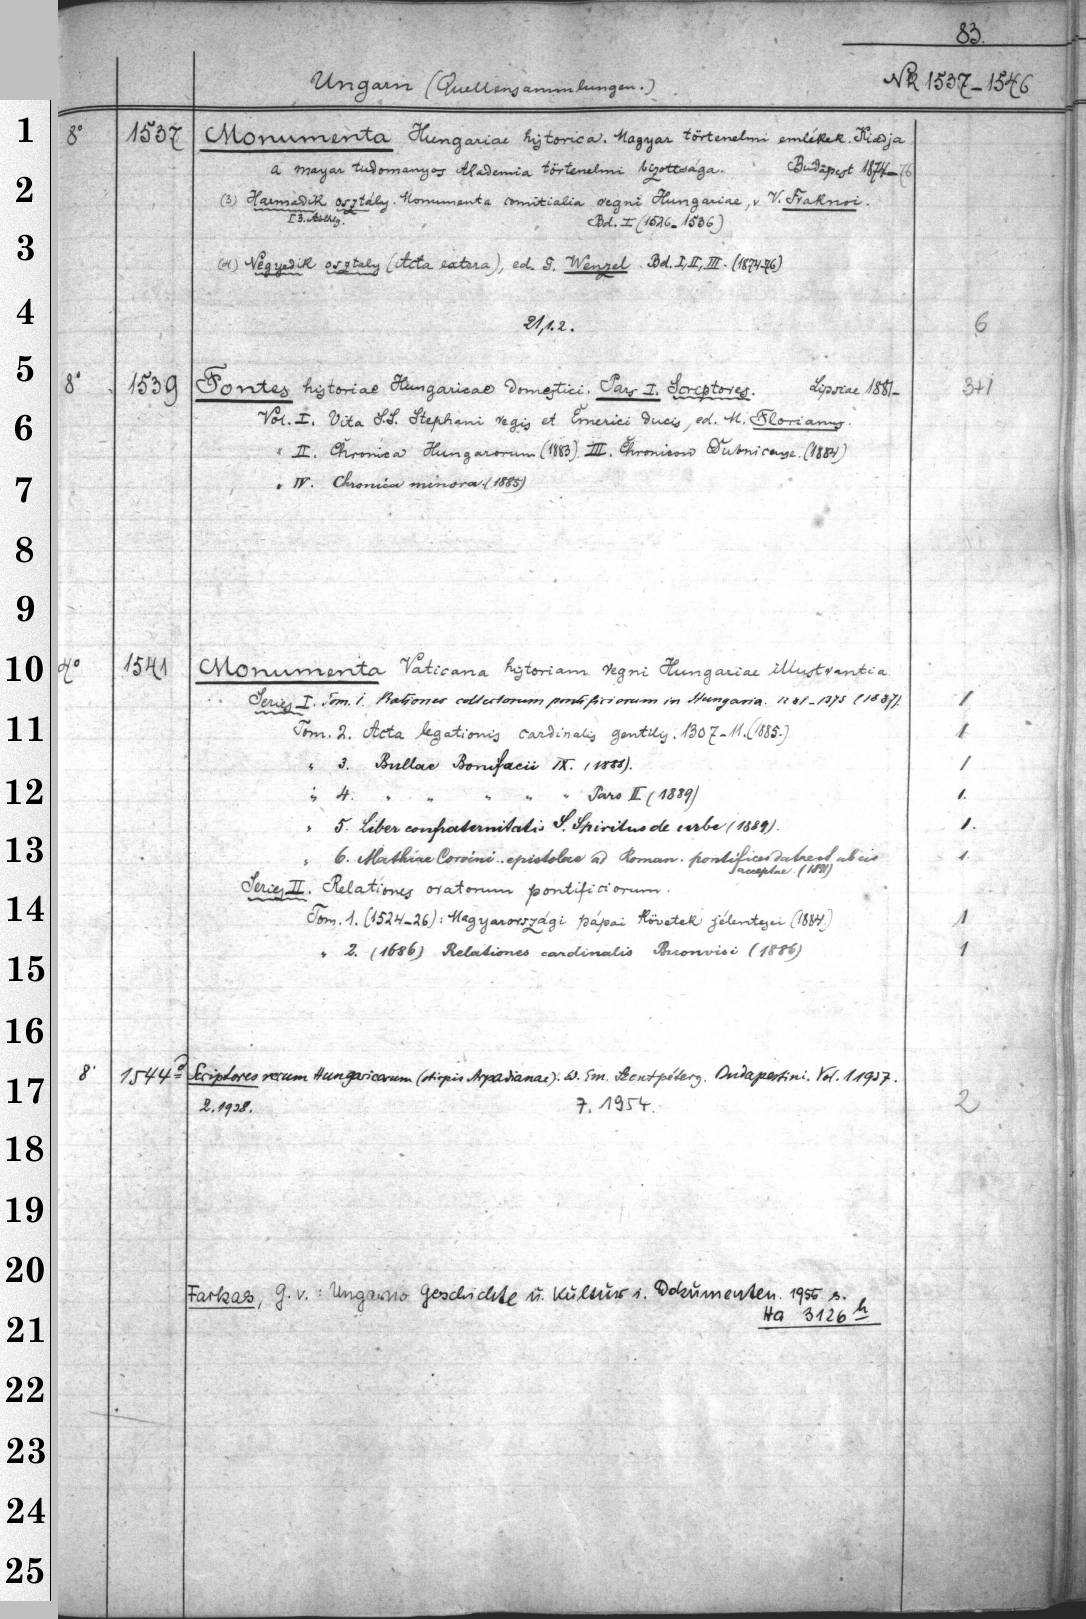 83.
Ungarn (Quellensammlungen.) Nr 1537-1546
1 8° 1537 Monumenta Hungariae historica. Magyar törtenelmi emlékek. Kiadja
a mayar tudomanyos Akademia törtenelmi bizottsága. Budapest 1874-76
2 (3) Harmadik osztály. Monumenta comitialia regni Hungariae, v. V. Fraknoi.
[3. Abthlg. Bd. I (1526-1536)
3 (4) Negyedik osztaly (Acta extera), ed. G. Wenzel. Bd. I, II, III. (1874-76)
4 21,1.2. 6
5 8° 1539 Fontes historiae Hungaricae domestici. Pars I. Scriptores. Lipsiae 1881- 3+1
6 Vol. I. Vita S.S. Stephani regis et Emerici ducis, ed. M. Florianus.
" II. Chronica Hungarorum (1883) III. Chronicon Dubnicense. (1884)
7 " IV. Chronica minora. (1885)
8
9
10 4° 1541 Monumenta Vaticana historiam regni Hungariae illustrantia
Series I. Tom. 1. Rationes collectorum pontificiorum in Hungaria. 1281-1375 (1887). 1
11 Tom. 2. Acta legationis cardinalis gentilis. 1307-11. (1885.) 1
" 3. Bullae Bonifacii IX. (1888). 1
12 " 4. " " " " " Pars II (1889) 1.
" 5. Liber confraternitatis S. Spiritus de urbe (1889). 1.
13 " 6. Mathiae Corvini epistolae ad Roman. pontifices datae et ab eis
acceptae. (1891) 1.
Series II. Relationes oratorum pontificiorum.
14 Tom. 1. (1524-26): Magyarországi pápai követek jélentesei (1884) 1
15 " 2. (1686) Relationes cardinalis Buonvisi (1886) 1
16
17 8° 1544a Scriptores rerum Hungaricarum (stirpis Arpadianae). Ed. Em. Szentpétery. Budapestini. Vol. 1 1937.
2. 1938. 7. 1954. 2
18
19
20
Farkas, G. v.: Ungarns Geschichte u. Kultur i. Dokumenten. 1955 s.
21 Ha 3126 h
22
23
24
25